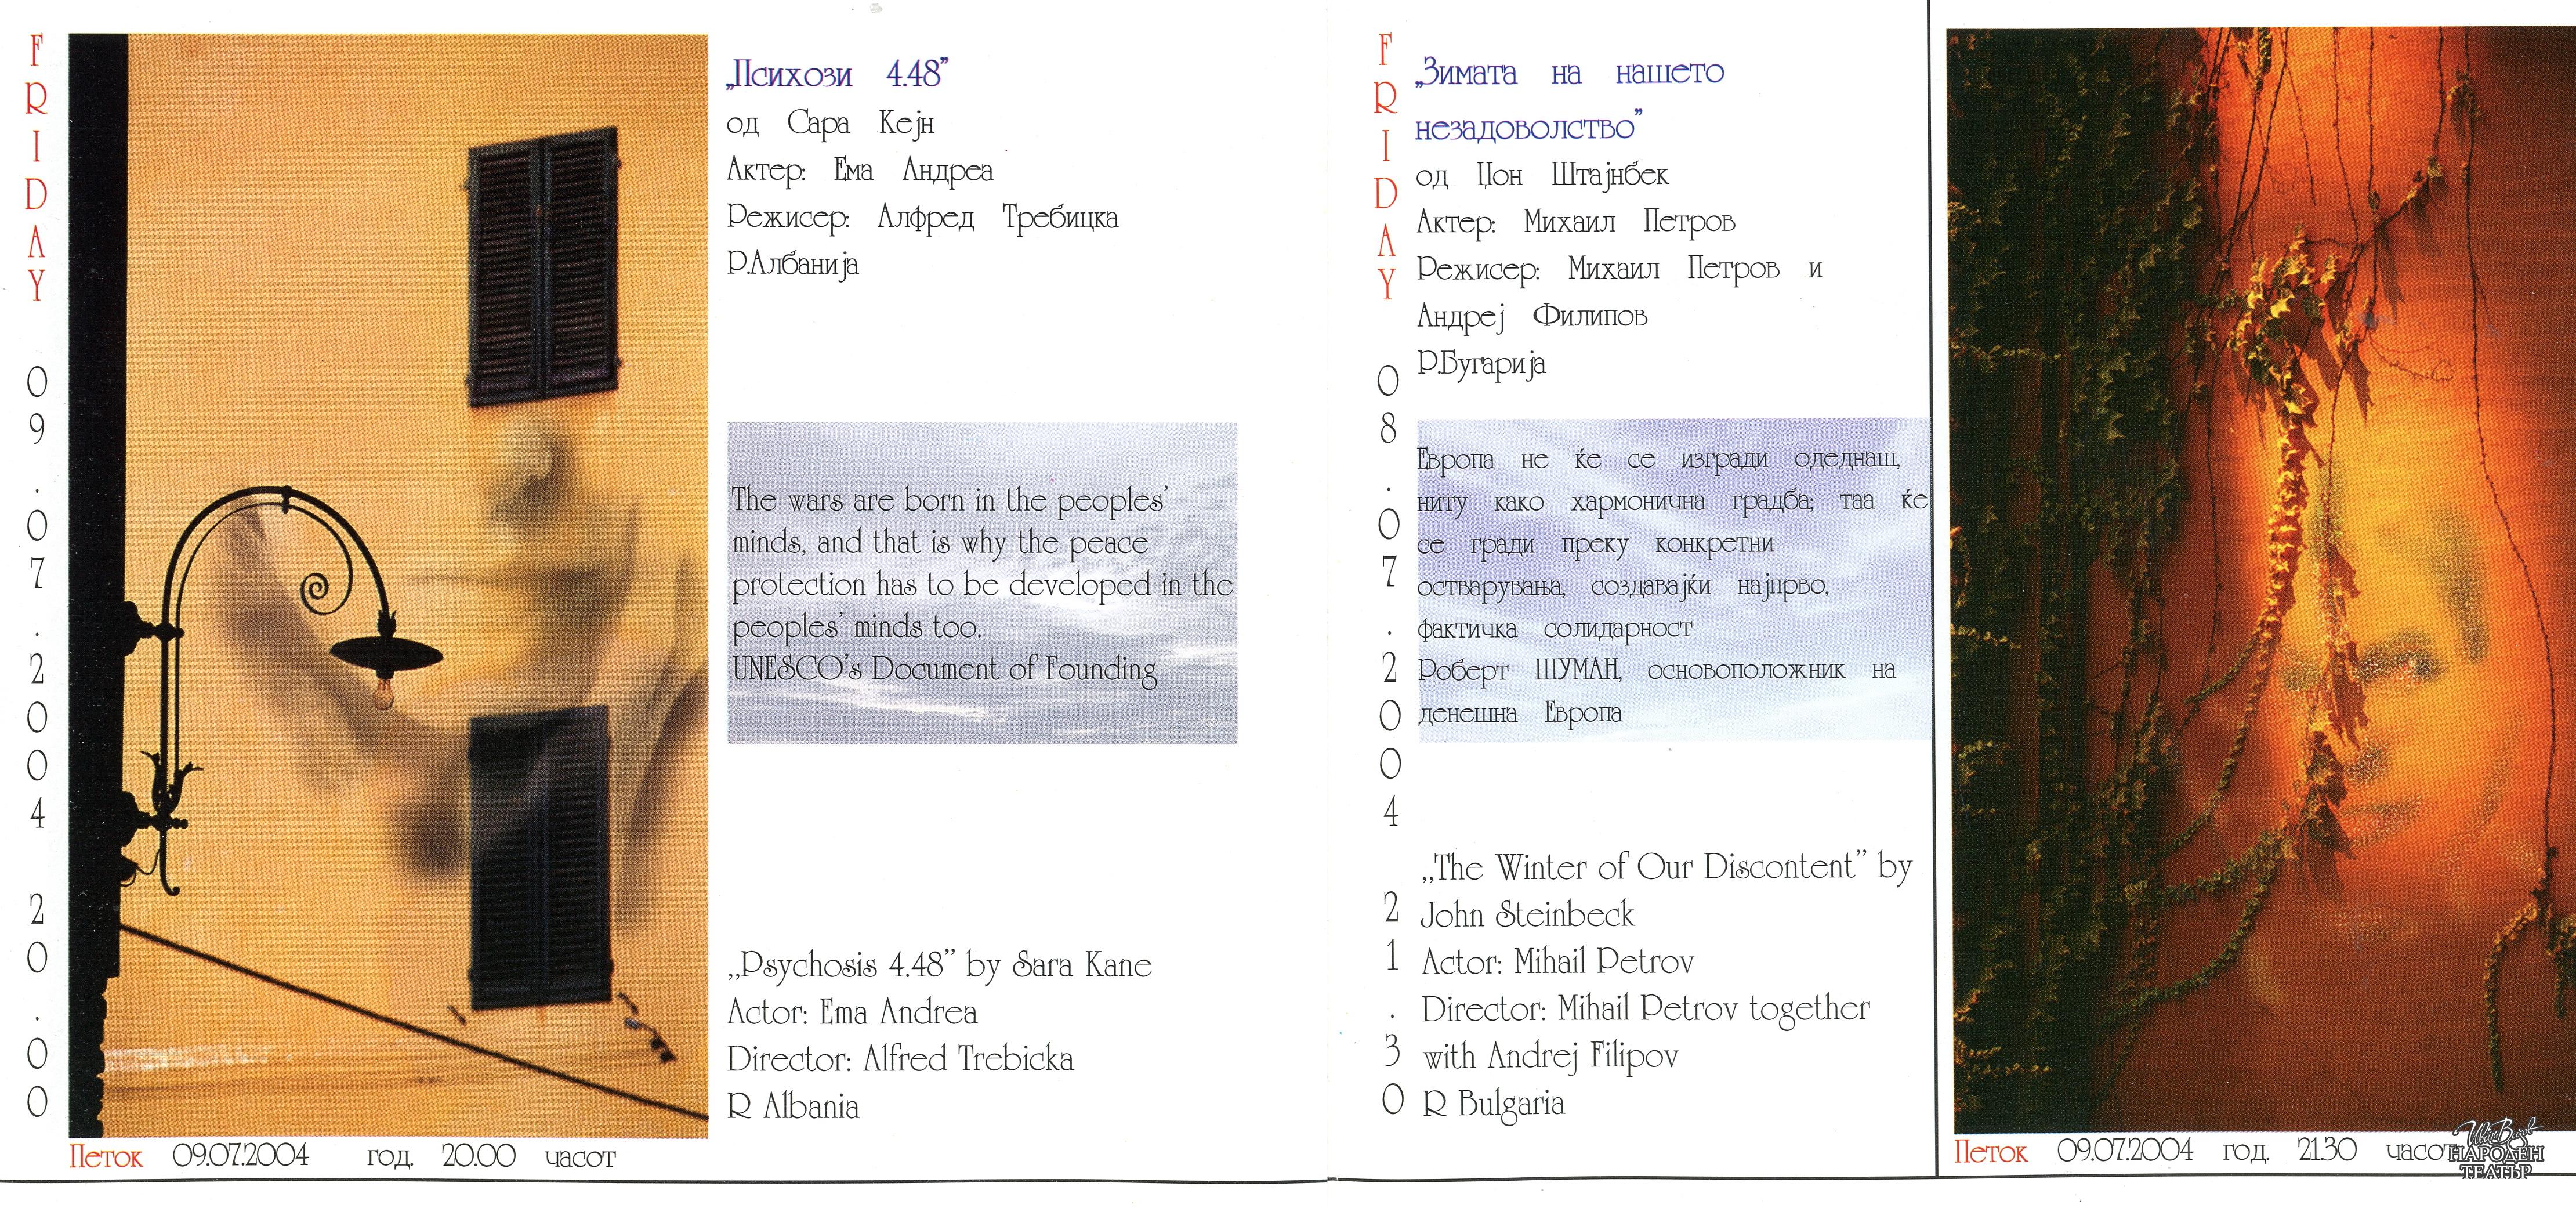 FRIDAY 09.07.2004 20.00
„Психози 4.48”
од Сара Кејн
Актер: Ема Андреа
Режисер: Алфред Требицка
Р.Албанија
The wars are born in the peoples’
minds, and that is why the peace
protection has to be developed in the
peoples’ minds too.
UNESCO’s Document of Founding
„Psychosis 4.48” by Sara Kane
Actor: Ema Andrea
Director: Alfred Trebicka
R Albania
Петок 09.07.2004 год. 20.00 часот
FRIDAY 08.07.2004 21.30
„Зимата на нашето
незадоволство”
од Џон Штајнбек
Актер: Михаил Петров
Режисер: Михаил Петров и
Андреј Филипов
Р.Бугарија
Европа не ќе се изгради одеднаш,
ниту како хармонична градба; таа ќе
се гради преку конкретни
остварувања, создавајќи најпрво,
фактичка солидарност
Роберт ШУМАН, основоположник на
денешна Европа
„The Winter of Our Discontent” by
John Steinbeck
Actor: Mihail Petrov
Director: Mihail Petrov together
with Andrej Filipov
R Bulgaria
Петок 09.07.2004 год. 21.30 часот
Иван Вазов
НАРОДЕН
ТЕАТЪР